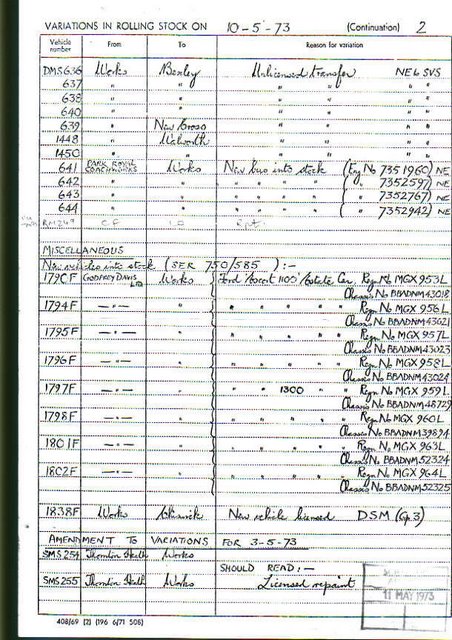 VARIATIONS IN ROLLING STOCK ON 10-5-73 (Continuation) 2
Vehicle number From To Reason for variation
DMS 636 Works Bexley Unlicensed transfer NE6 SVS
637 " " " " " "
638 " " " " " "
640 " " " " " "
639 " New Cross " " " "
1448 " Walworth " " " "
1450 " " " " " "
641 PARK ROYAL COACHWORKS Works New bus into stock (Eng No 7351960) NE
642 " " " " " " ( " 7352597) NE
643 " " " " " " ( " 7352767) NE
644 " " " " " " ( " 7352942) NE
RM249 CF LO Rpt.
MISCELLANEOUS
New vehicles into stock (SER 750/585) :-
1790F GODFREY DAVIS LTD Works Ford Escort 1100 Estate Car Regn No MGX 953L
Chassis No BBADNM43018
1794F — " — " " " " " Regn No MGX 956L
Chassis No BBADNM43021
1795F — " — " " " " " Regn No MGX 957L
Chassis No BBADNM43023
1796F — " — " " " " " Regn No MGX 958L
Chassis No BBADNM43024
1797F — " — " " " 1300 " " Regn No MGX 959L
Chassis No BBADNM48729
1798F — " — " " " " " Regn No MGX 960L
Chassis No BBADNM39894
1801F — " — " " " " " Regn No MGX 963L
Chassis No BBADNM52324
1802F — " — " " " " " Regn No MGX 964L
Chassis No BBADNM52325
1838F Works Chiswick New vehicle licensed DSM (Gp3)
AMENDMENT TO VARIATIONS FOR 3-5-73
SMS 254 Thornton Heath Works
SHOULD READ :-
SMS 255 Thornton Heath Works Licensed repaint
11 MAY 1973
408/69 (2) (196 6/71 508)